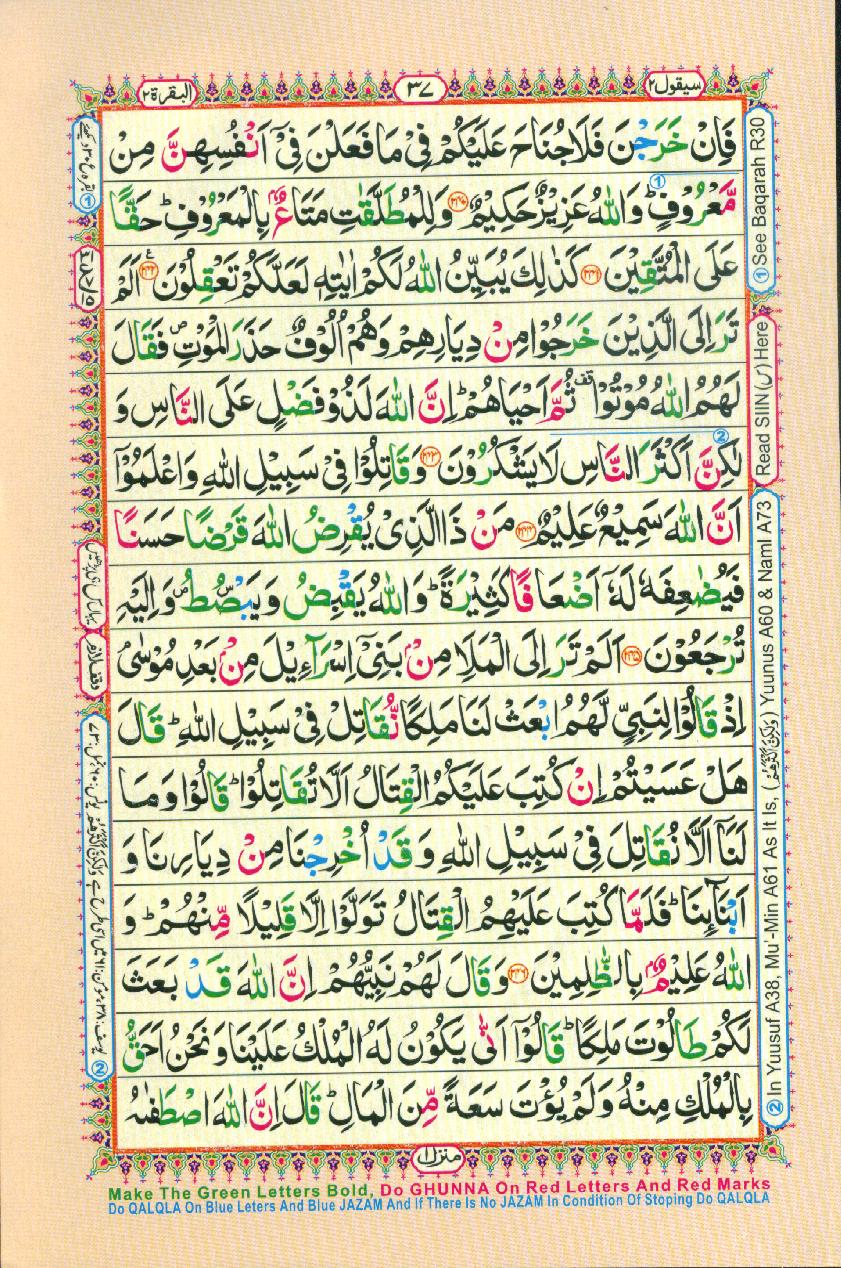 البقرة ٢
٣٧
سيقول ٢
فَاِنْ خَرَجْنَ فَلَا جُنَاحَ عَلَيْكُمْ فِىْ مَا فَعَلْنَ فِىْٓ اَنْفُسِهِنَّ مِنْ
مَّعْرُوْفٍ ؕ وَاللّٰهُ عَزِيْزٌ حَكِيْمٌ ﴿۲۴۰﴾ وَلِلْمُطَلَّقٰتِ مَتَاعٌۢ بِالْمَعْرُوْفِ ؕ حَقًّا
عَلَى الْمُتَّقِيْنَ ﴿۲۴۱﴾ كَذٰلِكَ يُبَيِّنُ اللّٰهُ لَكُمْ اٰيٰتِهٖ لَعَلَّكُمْ تَعْقِلُوْنَ ﴿۲۴۲﴾ اَلَمْ
تَرَ اِلَى الَّذِيْنَ خَرَجُوْا مِنْ دِيَارِهِمْ وَهُمْ اُلُوْفٌ حَذَرَ الْمَوْتِ ۪ فَقَالَ
لَهُمُ اللّٰهُ مُوْتُوْا ۟ ثُمَّ اَحْيَاهُمْ ؕ اِنَّ اللّٰهَ لَذُوْ فَضْلٍ عَلَى النَّاسِ وَ
لٰكِنَّ اَكْثَرَ النَّاسِ لَا يَشْكُرُوْنَ ﴿۲۴۳﴾ وَقَاتِلُوْا فِىْ سَبِيْلِ اللّٰهِ وَاعْلَمُوْٓا
اَنَّ اللّٰهَ سَمِيْعٌ عَلِيْمٌ ﴿۲۴۴﴾ مَنْ ذَا الَّذِىْ يُقْرِضُ اللّٰهَ قَرْضًا حَسَنًا
فَيُضٰعِفَهٗ لَهٗٓ اَضْعَافًا كَثِيْرَةً ؕ وَاللّٰهُ يَقْبِضُ وَيَبْصُۜطُ ۪ وَاِلَيْهِ
تُرْجَعُوْنَ ﴿۲۴۵﴾ اَلَمْ تَرَ اِلَى الْمَلَاِ مِنْۢ بَنِىْٓ اِسْرَآءِيْلَ مِنْۢ بَعْدِ مُوْسٰى
اِذْ قَالُوْا لِنَبِىٍّ لَّهُمُ ابْعَثْ لَنَا مَلِكًا نُّقَاتِلْ فِىْ سَبِيْلِ اللّٰهِ ؕ قَالَ
هَلْ عَسَيْتُمْ اِنْ كُتِبَ عَلَيْكُمُ الْقِتَالُ اَلَّا تُقَاتِلُوْا ؕ قَالُوْا وَمَا
لَنَآ اَلَّا نُقَاتِلَ فِىْ سَبِيْلِ اللّٰهِ وَقَدْ اُخْرِجْنَا مِنْ دِيَارِنَا وَ
اَبْنَآئِنَا ؕ فَلَمَّا كُتِبَ عَلَيْهِمُ الْقِتَالُ تَوَلَّوْا اِلَّا قَلِيْلًا مِّنْهُمْ ؕ وَ
اللّٰهُ عَلِيْمٌۢ بِالظّٰلِمِيْنَ ﴿۲۴۶﴾ وَقَالَ لَهُمْ نَبِيُّهُمْ اِنَّ اللّٰهَ قَدْ بَعَثَ
لَكُمْ طَالُوْتَ مَلِكًا ؕ قَالُوْٓا اَنّٰى يَكُوْنُ لَهُ الْمُلْكُ عَلَيْنَا وَنَحْنُ اَحَقُّ
بِالْمُلْكِ مِنْهُ وَلَمْ يُؤْتَ سَعَةً مِّنَ الْمَالِ ؕ قَالَ اِنَّ اللّٰهَ اصْطَفٰىهُ
① See Baqarah R30
Read SIIN (س) Here
② In Yuusuf A38, Mu'-Min A61 As It Is, (وَلٰكِنَّ اَكْثَرَهُمْ) Yuunus A60 & Naml A73
منزل ١
Make The Green Letters Bold, Do GHUNNA On Red Letters And Red Marks
Do QALQLA On Blue Leters And Blue JAZAM And If There Is No JAZAM In Condition Of Stoping Do QALQLA